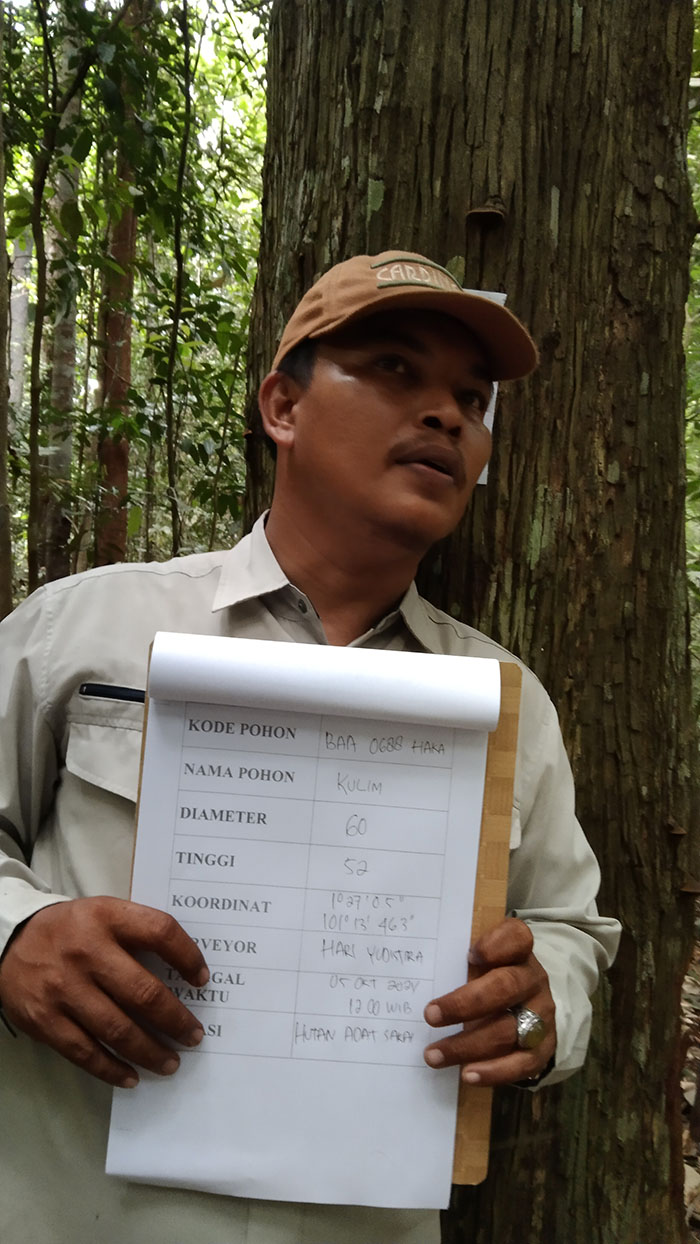 KODE POHON BAA 0688 HAKA
NAMA POHON KULIM
DIAMETER 60
TINGGI 52
KOORDINAT 1°27'05"
101°13'463"
RVEYOR HARI YUDISTIRA
TA GAL 05 OKT 2024
WAKTU 12 00 WIB
ASI HUTAN ADAT SAKAI